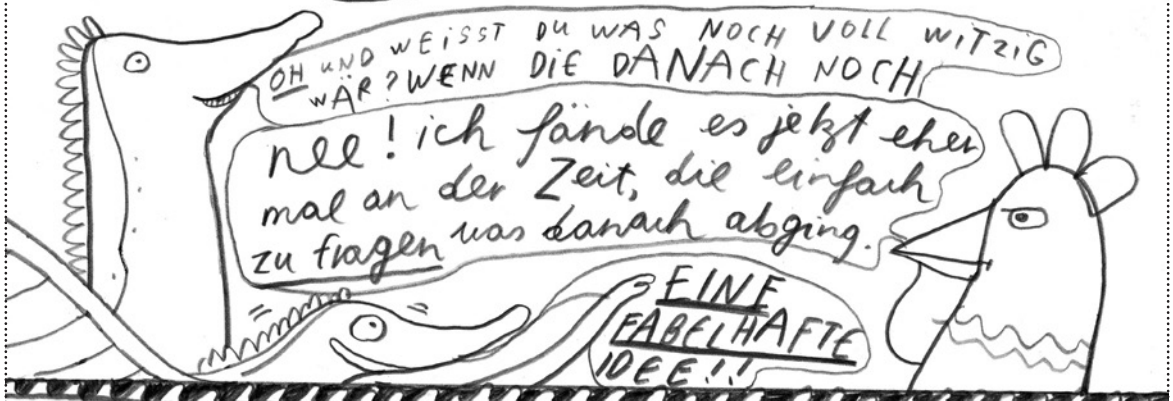 OH UND WEISST DU WAS NOCH VOLL WITZIG
WÄR? WENN DIE DANACH NOCH
nee! ich fände es jetzt eher
mal an der Zeit, die einfach
zu fragen was danach abging.
EINE
FABELHAFTE
IDEE!!